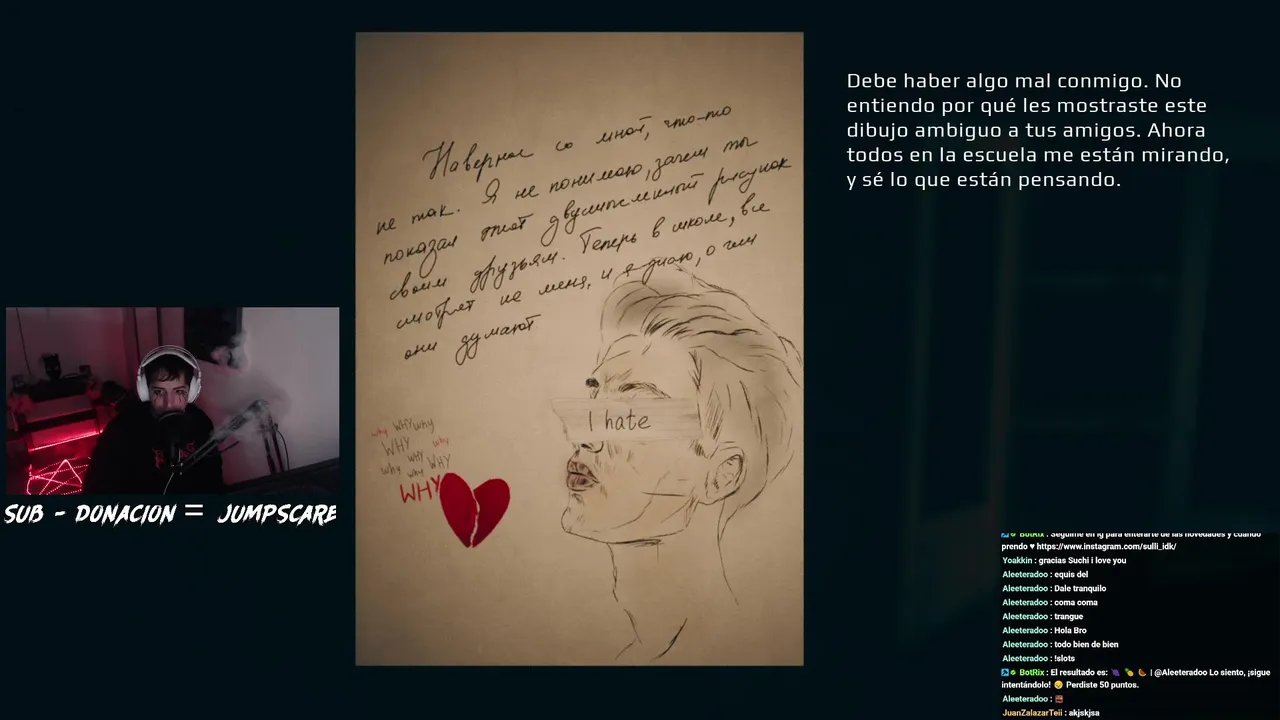 Debe haber algo mal conmigo. No
entiendo por qué les mostraste este
dibujo ambiguo a tus amigos. Ahora
todos en la escuela me están mirando,
y sé lo que están pensando.
Наверное со мной, что-то
не так. Я не понимаю, зачем ты
показал этот двусмысленный рисунок
своим друзьям. Теперь в школе, все
смотрят на меня, и я знаю, о чем
они думают
I hate
why WHY why
WHY why
why WHY
why why WHY
WHY
SUB - DONACION = JUMPSCARE
BotRix : Seguime en ig para enterarte de las novedades y cuando
prendo ♥ https://www.instagram.com/sulli_idk/
Yoakkin : gracias Suchi i love you
Aleeteradoo : equis del
Aleeteradoo : Dale tranquilo
Aleeteradoo : coma coma
Aleeteradoo : trangue
Aleeteradoo : Hola Bro
Aleeteradoo : todo bien de bien
Aleeteradoo : !slots
BotRix : El resultado es: 🍇 🍍 🍊 | @Aleeteradoo Lo siento, ¡sigue
intentándolo! 😔 Perdiste 50 puntos.
Aleeteradoo :
JuanZalazarTeii : akjskjsa